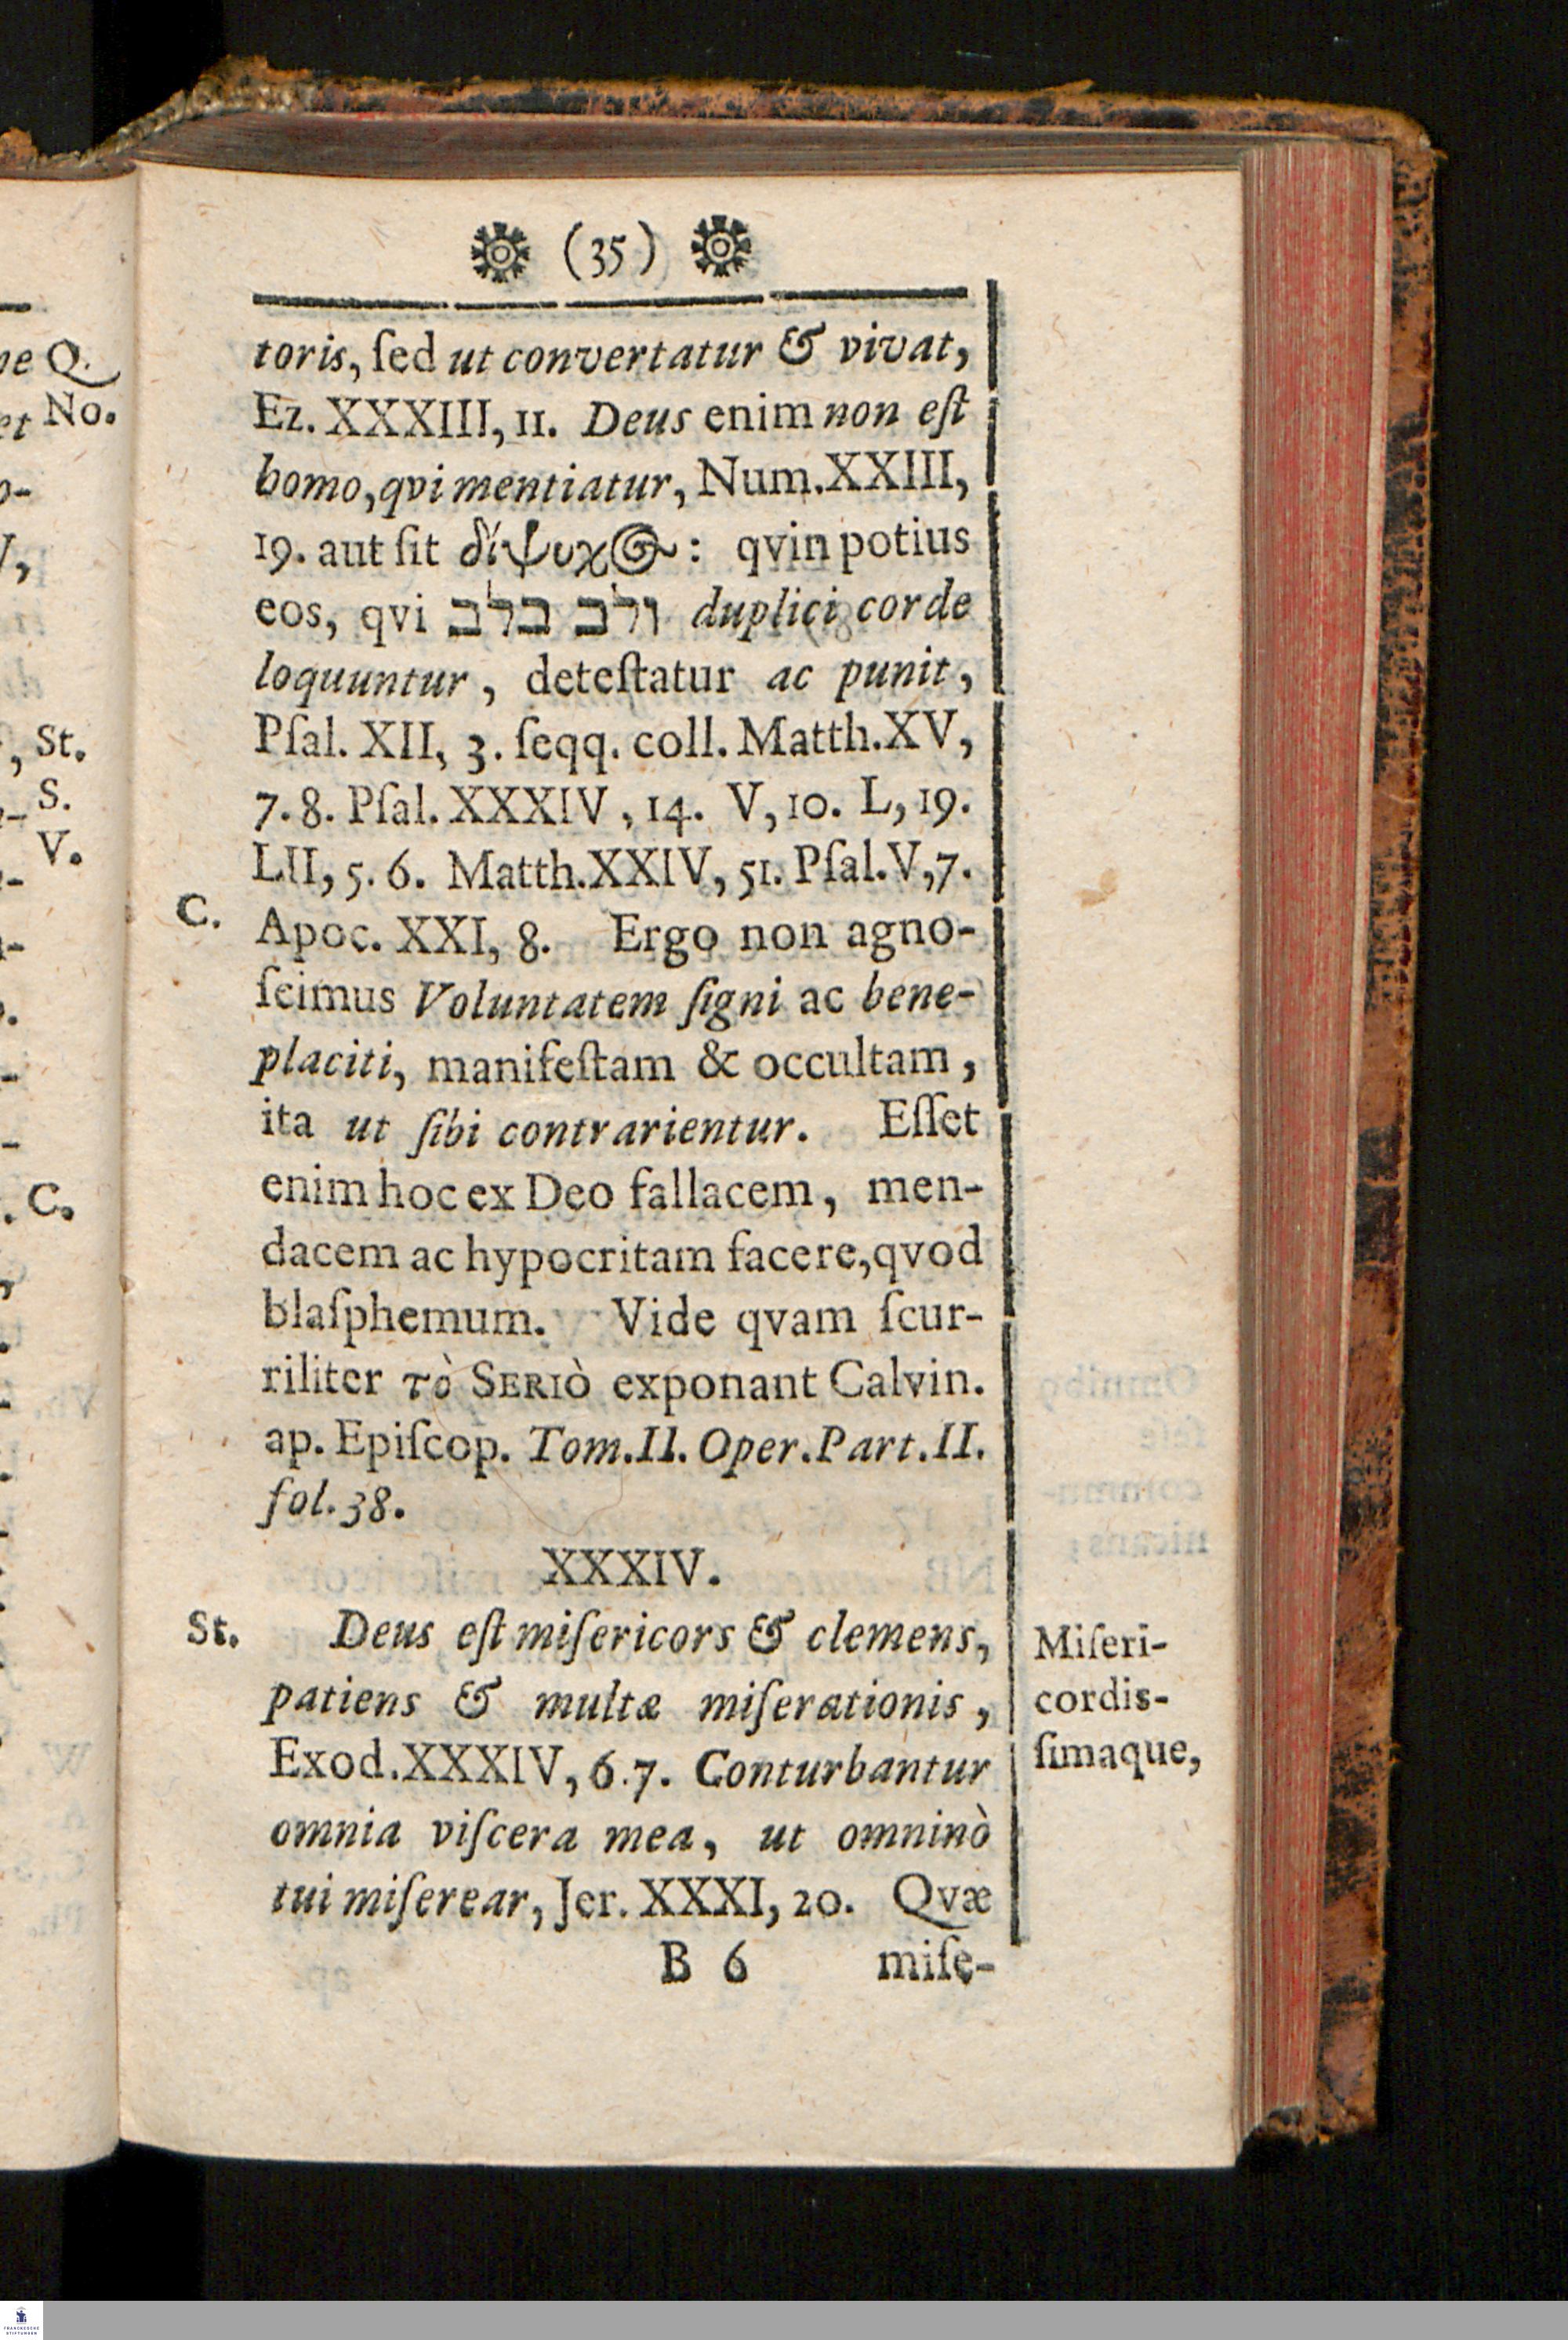 (35)
toris, ſed ut convertatur & vivat,
Ez. XXXIII, 11. Deus enim non eſt
homo, qvi mentiatur, Num. XXIII,
19. aut ſit δίψυχος: qvin potius
eos, qvi בלב ולב duplici corde
loquuntur, deteſtatur ac punit,
Pſal. XII, 3. ſeqq. coll. Matth. XV,
7. 8. Pſal. XXXIV, 14. V, 10. L, 19.
LII, 5. 6. Matth. XXIV, 51. Pſal. V, 7.
C.
Apoc. XXI, 8. Ergo non agno-
ſcimus Voluntatem ſigni ac bene-
placiti, manifeſtam & occultam,
ita ut ſibi contrarientur. Eſſet
enim hoc ex Deo fallacem, men-
dacem ac hypocritam facere, qvod
blaſphemum. Vide qvam ſcur-
riliter τὸ SERIÒ exponant Calvin.
ap. Epiſcop. Tom. II. Oper. Part. II.
fol. 38.
XXXIV.
St.
Deus eſt miſericors & clemens,
patiens & multæ miſerationis,
Exod. XXXIV, 6. 7. Conturbantur
omnia viſcera mea, ut omninò
tui miſerear, Jer. XXXI, 20. Qvæ
B 6 miſe-
Miſeri-
cordis-
ſimaque,
Q.
No.
et
St.
S.
V.
C.
FRANCKESCHE
STIFTUNGEN